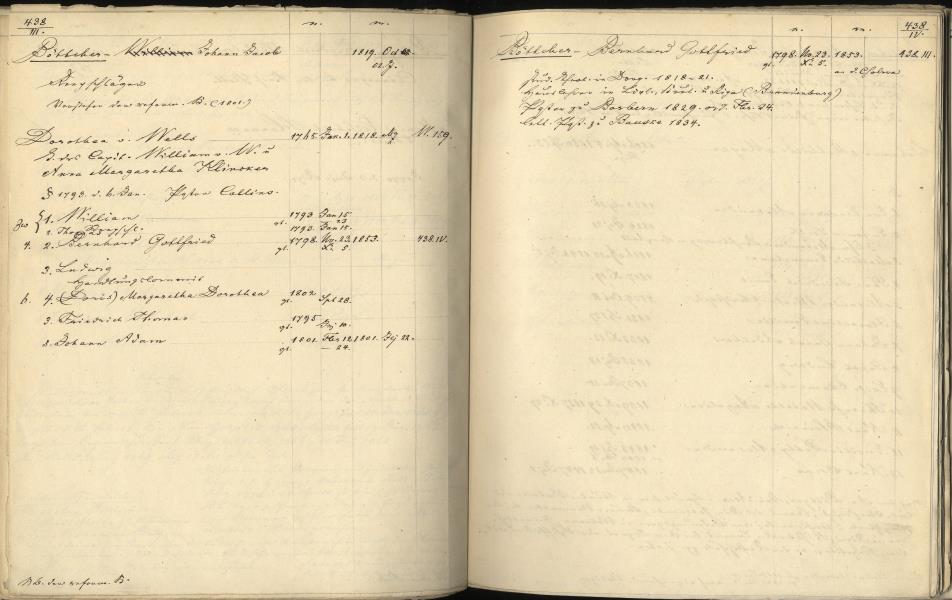 438
III.
n. m.
Böttcher - William Johann Jacob 1819. Oct
Reepschläger
Vorsteher der reform. K. (1801.)
Dorothea v. Wells 1765 Jan. 1. 1818. VI. 159.
T. des Capit. William v. W. u
Anna Margaretha Klincker
1793. d. 6. Jan. Pastor Collins.
1. William 1793 Jan 15
gt. 1793. Jan 15.
2. Bernhard Gottfried 1798. Nv. 23. 1853. 438.IV.
gt. 5.
3. Ludwig
Handlungscommis
6. 4. (Doris) Margaretha Dorothea 1802
gt. Spt 28.
3. Friedrich Thomas 1795
gt. 10.
Johann Adam 1801. Fbr 12. 1801. 22.
gt. — 24.
K.B. der reform. K.
438
IV.
n. m.
Böttcher - Bernhard Gottfried 1798. Nv. 23. 1853. 438.III.
gt. 5. an d. Cholera
stud. theol. in Dorp. 1818-21.
Hauslehrer in Livl., Kurl. u Riga (Brandenburg)
Pastor zu Barbern 1829. Fbr. 24.
lett. Past. zu Bauske 1834.